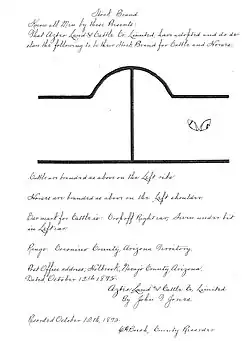 Stock Brand
Know all Men by these Presents:
That Aztec Land & Cattle Co. Limited, have adopted and do de-
clare the following to be their Stock Brand for Cattle and Horses.
Cattle are branded as above on the Left side
Horses are branded as above on the Left shoulder
Ear mark for Cattle is: Crop off Right ear, Seven under bit
in Left ear
Range: Coconino County, Arizona Territory.
Post Office address, Holbrook, Navajo County, Arizona.
Dated October 12th 1895.
Aztec Land & Cattle Co. Limited
By John T Jones
Recorded October 18th, 1895
County Recorder